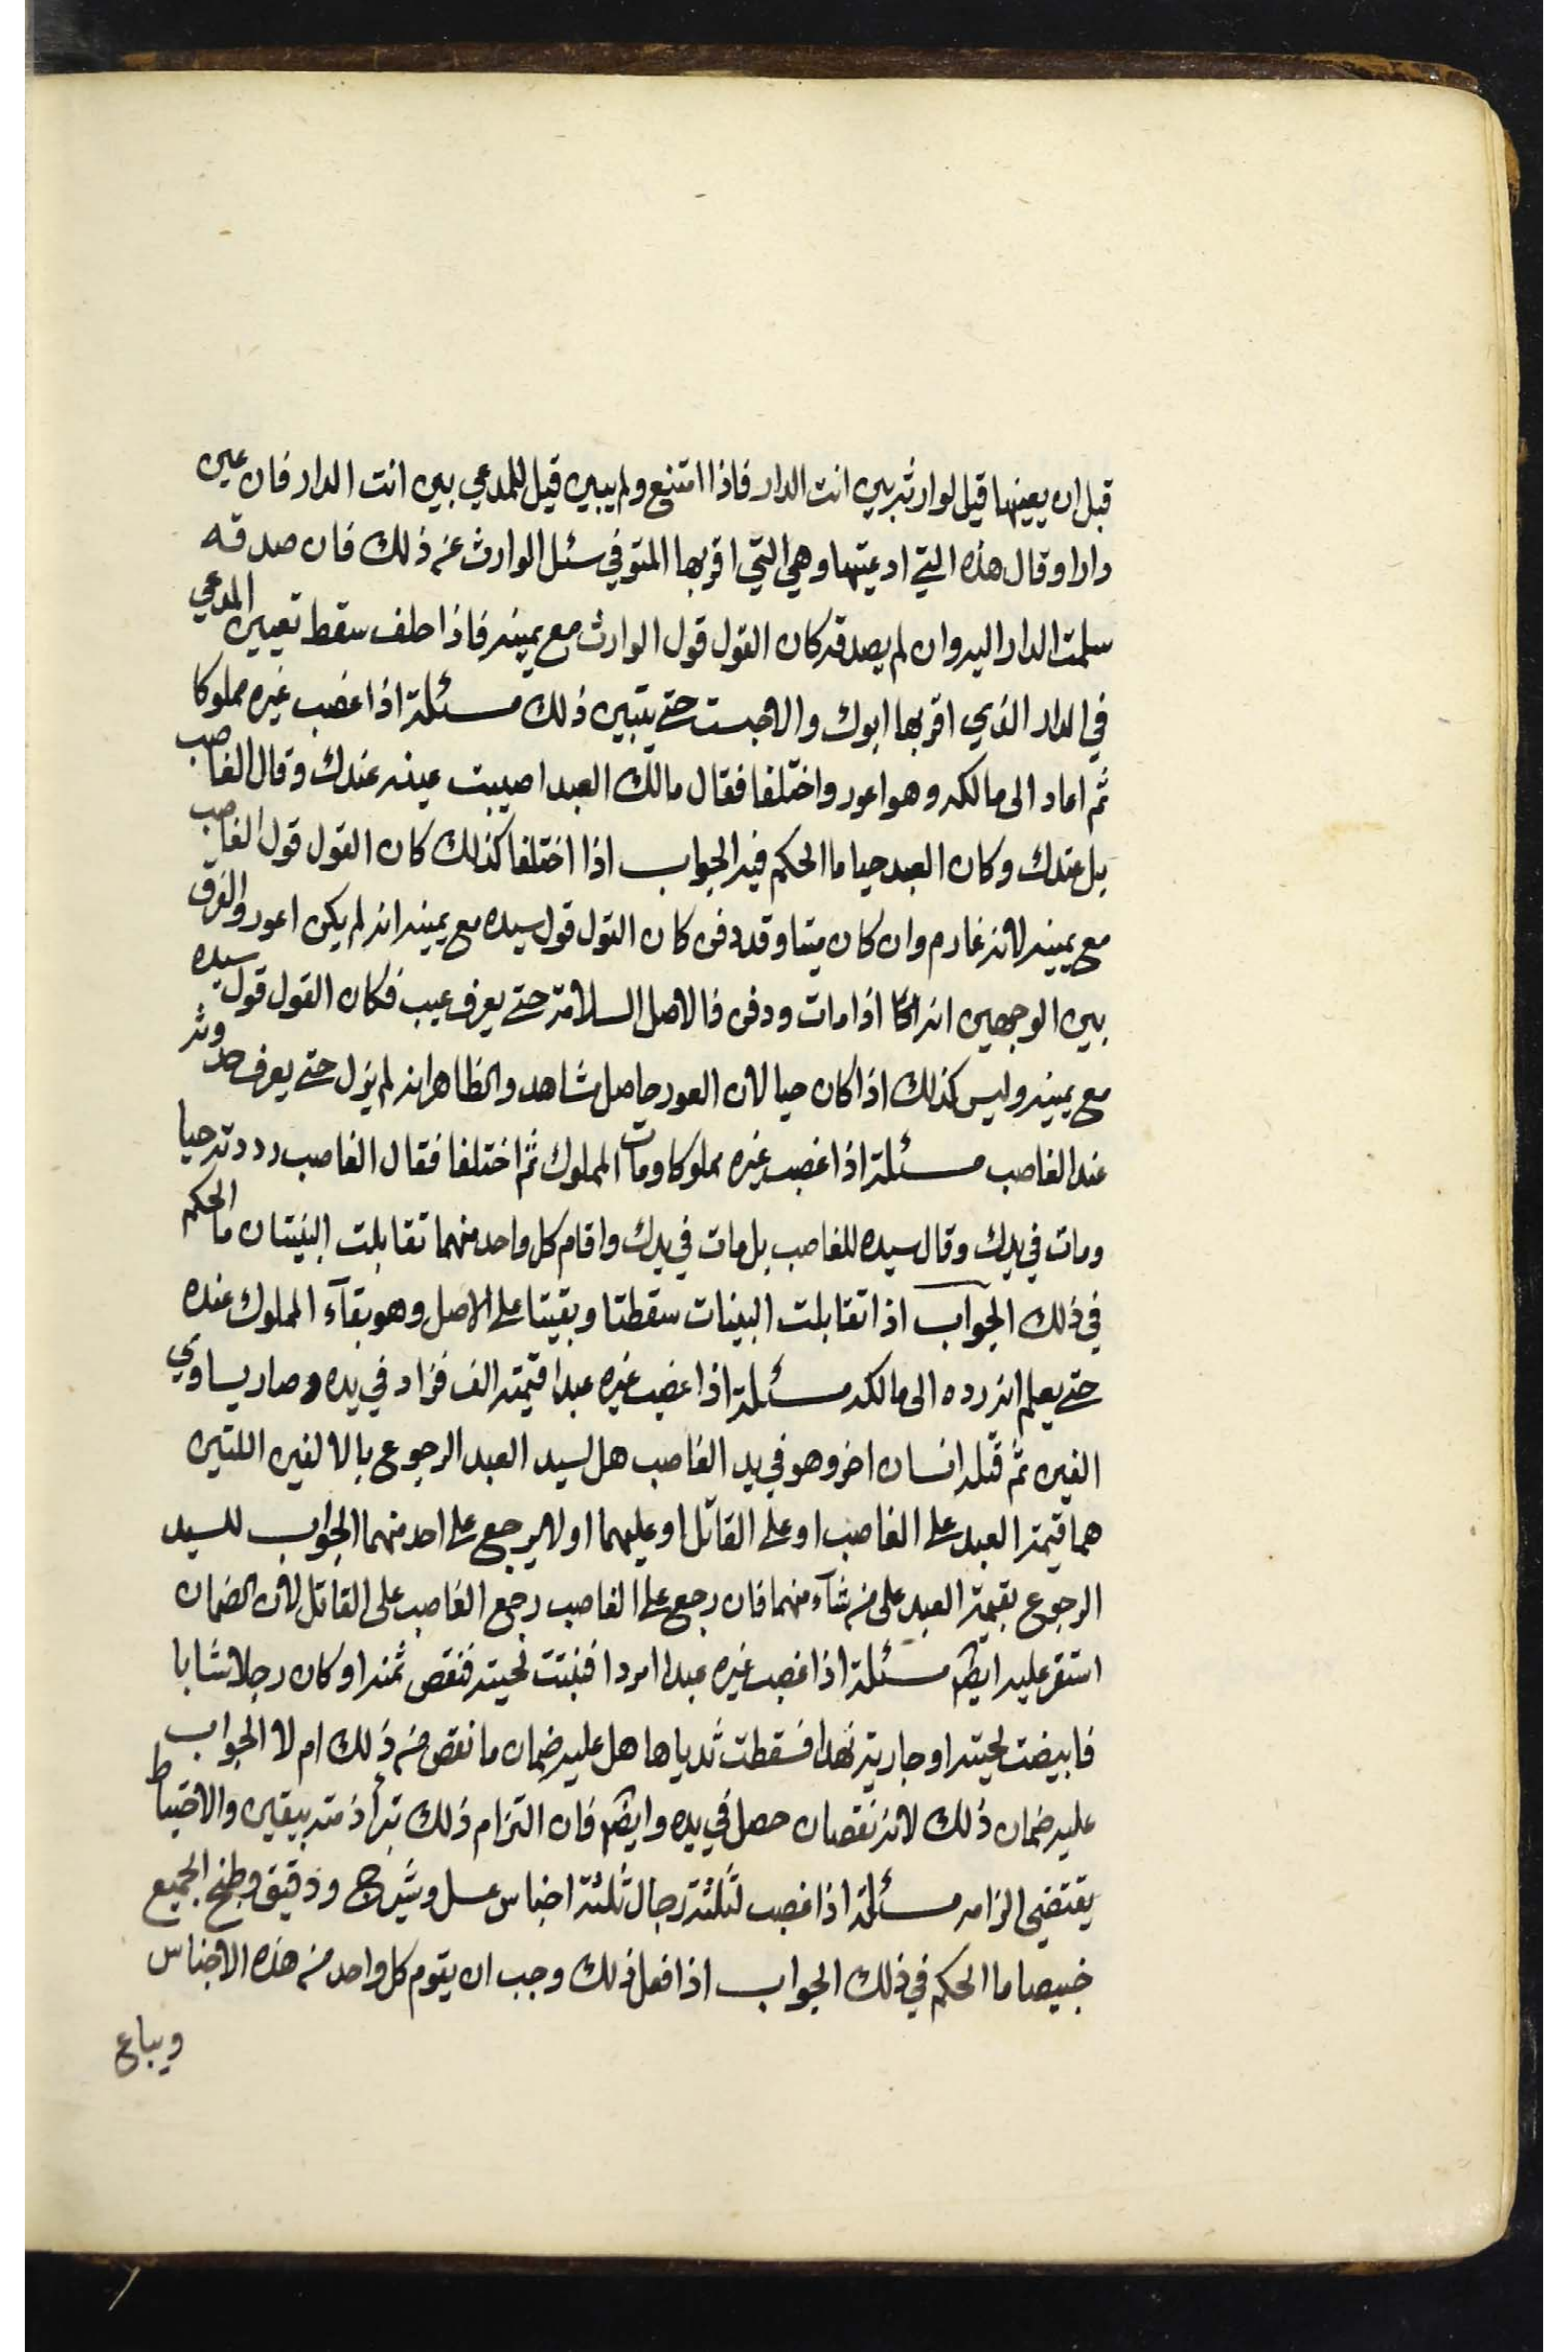 قبل ان يعينها قيل لوارثه بين انت الدار فاذا امتنع ولم يبين قيل للمدعي بين انت الدار فان عين
دارا وقال هذه التي ادعيتها وهي التي اقر بها المتوفي سئل الوارث عن ذلك فان صدقه
سلمت الدار اليه وان لم يصدقه كان القول قول الوارث مع يمينه فاذا حلف سقط تعيين المدعي
في الدار الذي اقر بها ابوك والا حبست حتى يتبين ذلك مسئلة اذا غصب غيره مملوكا
ثم اعاد الى مالكه وهو اعور واختلفا فقال مالك العبد اصيبت عينه عندك وقال الغاصب
بل عندك وكان العبد حيا ما الحكم فيه الجواب اذا اختلفا كذلك كان القول قول الغاصب
مع يمينه لانه غارم وان كان ميتا وقد دفن كان القول قول سيده مع يمينه انه لم يكن اعور والفرق
بين الوجهين انه اذا مات ودفن فالاصل السلامة حتى يعرف عيب فكان القول قول سيده
مع يمينه وليس كذلك اذا كان حيا لان العور حاصل مشاهد والظاهر انه لم يزل حتى يعرف حدوثه
عند الغاصب مسئلة اذا غصب غيره مملوكا ومات المملوك ثم اختلفا فقال الغاصب رددته حيا
ومات في يدك وقال سيده للغاصب بل مات في يدك واقام كل واحد منهما تقابلت البينتان ما الحكم
في ذلك الجواب اذا تقابلت البينات سقطتا وبقيتا على الاصل وهو بقآء المملوك عنده
حتى يعلم انه رده الى مالكه مسئلة اذا غصب غيره عبدا قيمته الف فزاد في يده وصار يساوي
الفين ثم قتله انسان اخر وهو في يد الغاصب هل لسيد العبد الرجوع بالالفين اللتين
هما قيمة العبد على الغاصب او على القاتل او عليهما او لا يرجع على احد منهما الجواب للسيد
الرجوع بقيمة العبد على من شآء منهما فان رجع على الغاصب رجع الغاصب على القاتل لان الضمان
استقر عليه ايضا مسئلة اذا غصب غيره عبدا امردا فنبتت لحيته فنقص ثمنه او كان رجلا شابا
فابيضت لحيته او جارية نهدا فسقطت ثدياها هل عليه ضمان ما نقص من ذلك ام لا الجواب
عليه ضمان ذلك لانه نقصان حصل في يده وايضا فان التزام ذلك تبرأ ذمته بيقين والاحتياط
يقتضي الزامه مسئلة اذا غصب لثلثة رجال ثلثة اجناس عسل وشيرج ودقيق وطبخ الجميع
خبيصا ما الحكم في ذلك الجواب اذا فعل ذلك وجب ان يقوم كل واحد من هذه الاجناس
ويباع